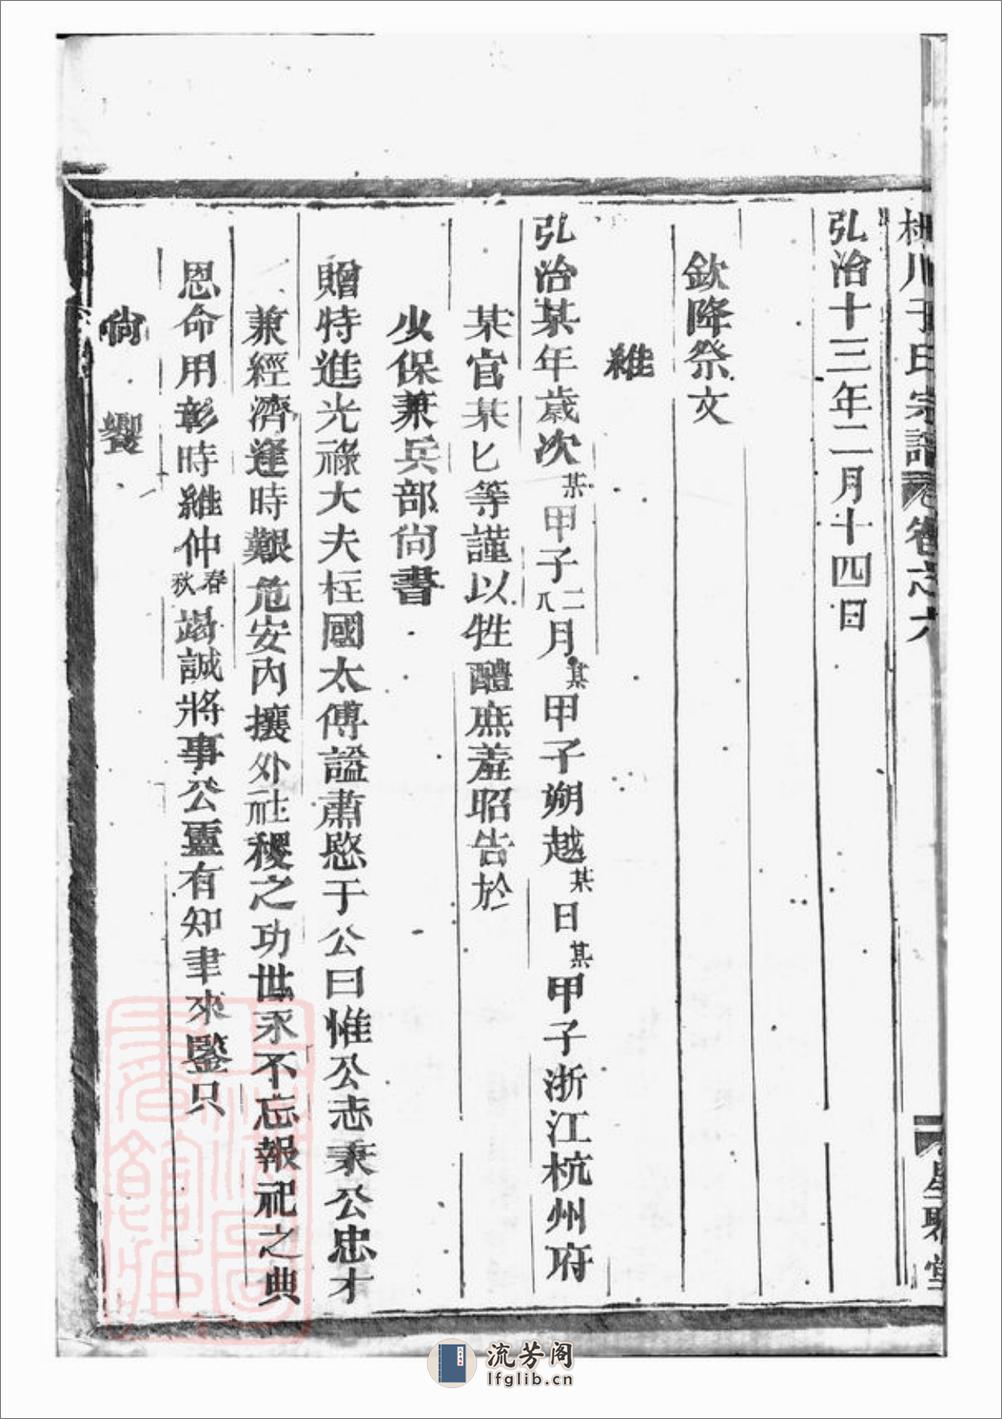 川于氏宗譜 卷之六
弘治十三年二月十四日
欽降祭文
維
弘治某年歲次某甲子二八月某甲子朔越某日某甲子浙江杭州府
某官某匕等謹以牲醴庶羞昭告於
少保兼兵部尚書
贈特進光祿大夫柱國太傅諡肅愍于公曰惟公志秉公忠才
兼經濟逢時艱危安內攘外社稷之功世永不忘報祀之典
恩命用彰時維仲春秋竭誠將事公靈有知聿來鑒只
尚 饗
流芳阁
lfglib.cn